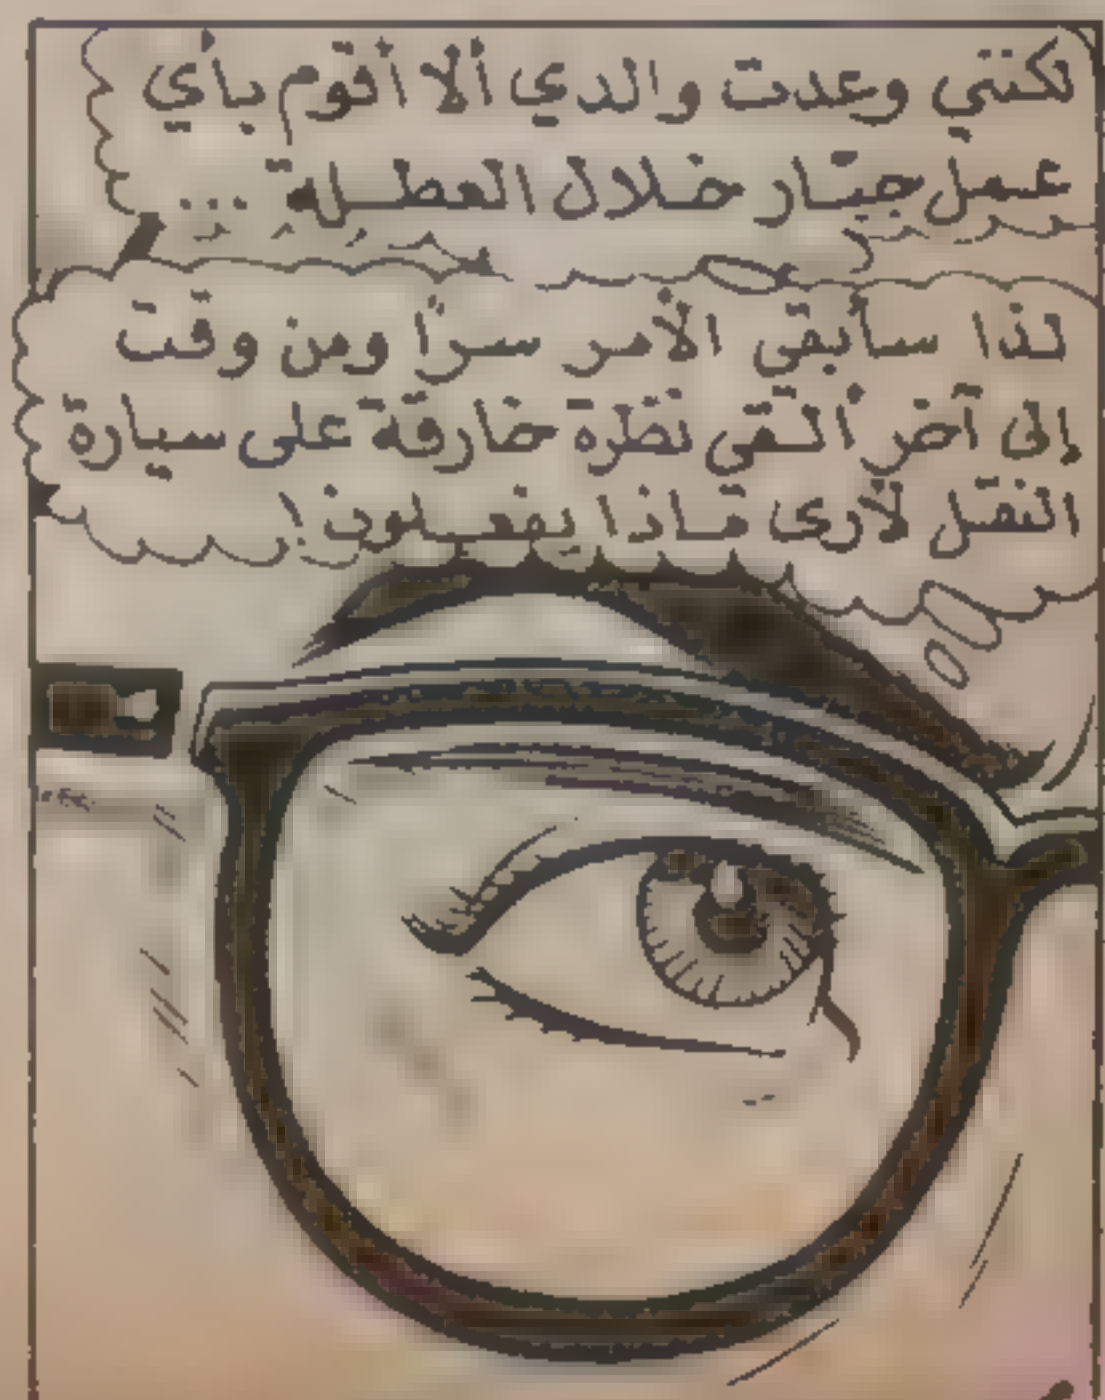 لكنني وعدت والدي ألا أقوم بأي
عمل جبّار خلال العطلة ...
لذا سأبقي الأمر سرًا ومن وقت
إلى آخر ألقي نظرة خارقة على سيارة
النقل لأرى ماذا يفعلون!